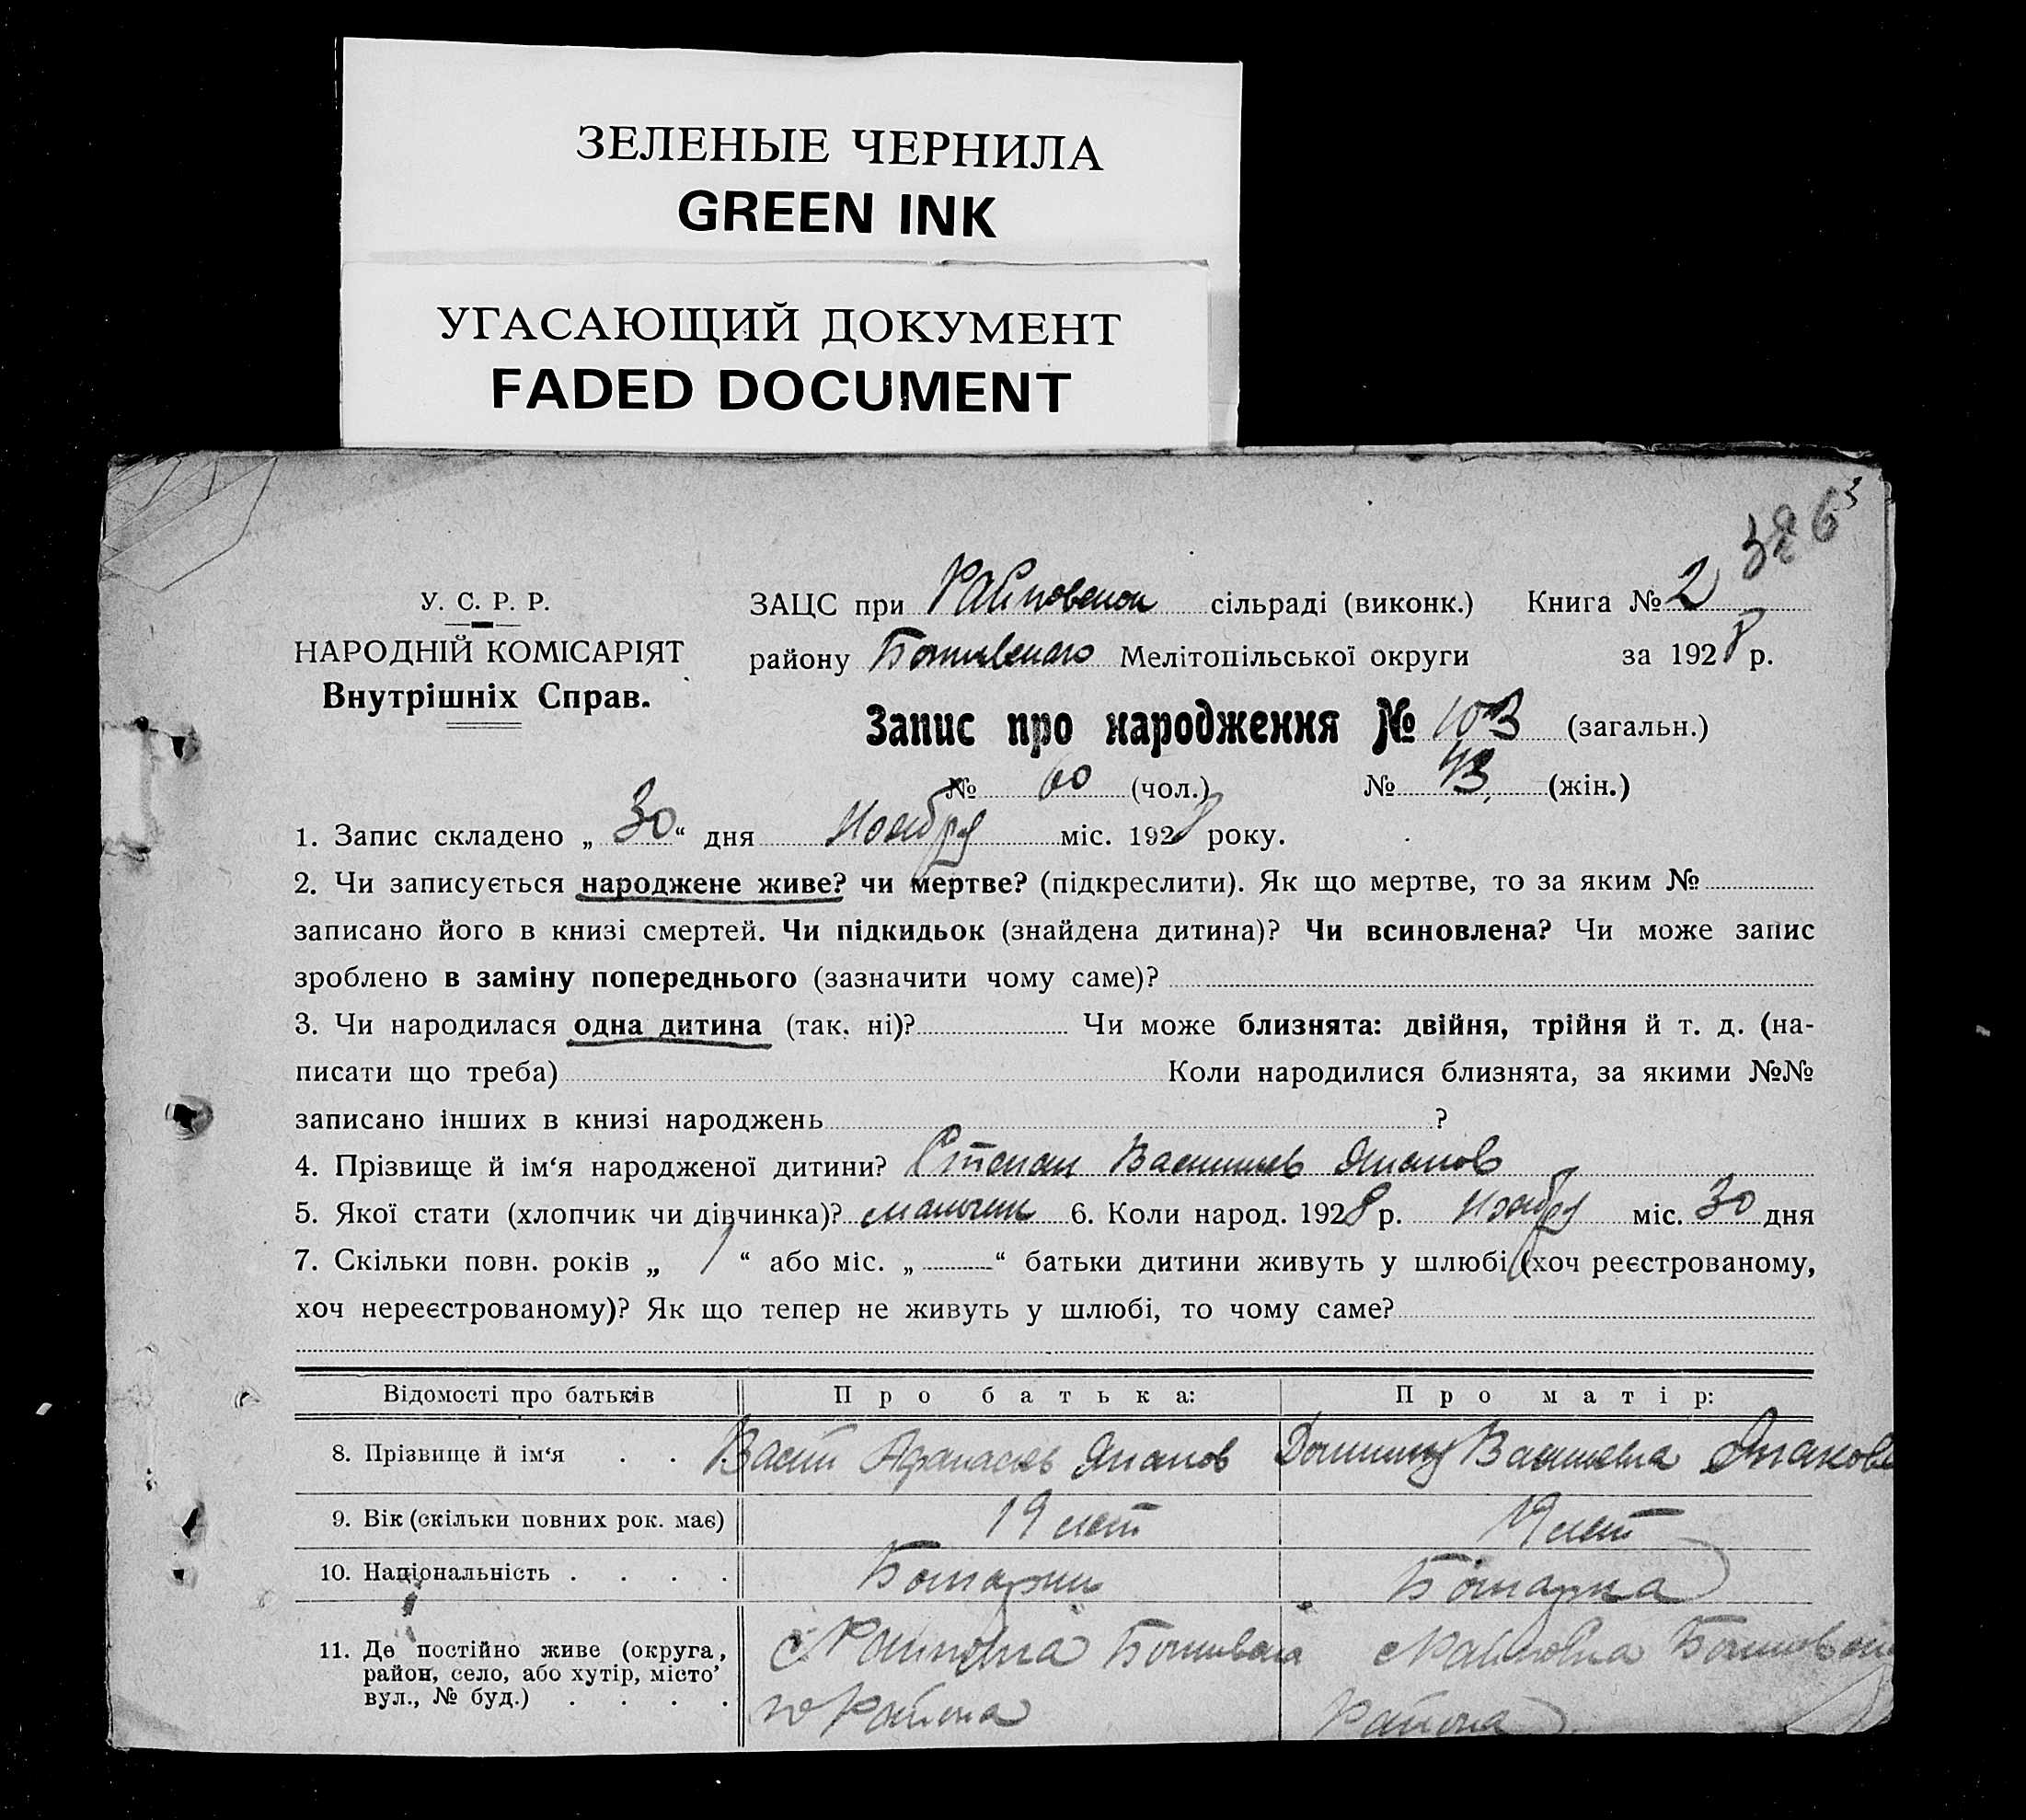 ЗЕЛЕНЫЕ ЧЕРНИЛА
GREEN INK
УГАСАЮЩИЙ ДОКУМЕНТ
FADED DOCUMENT
326
У. С. Р. Р.
НАРОДНІЙ КОМІСАРІЯТ
Внутрішніх Справ.
ЗАЦС при Райновском сільраді (виконк.) Книга № 2
району Ботиевского Мелітопільської округи за 1928 р.
Запис про народження № 103 (загальн.)
№ 60 (чол.) № 43 (жін.)
1. Запис складено „30“ дня Ноября міс. 1928 року.
2. Чи записується народжене живе? чи мертве? (підкреслити). Як що мертве, то за яким №
записано його в книзі смертей. Чи підкидьок (знайдена дитина)? Чи всиновлена? Чи може запис
зроблено в заміну попереднього (зазначити чому саме)?
3. Чи народилася одна дитина (так, ні)? Чи може близнята: двійня, трійня й т. д. (на-
писати що треба) Коли народилися близнята, за якими №№
записано інших в книзі народжень ?
4. Прізвище й ім‘я народженої дитини? Степан Васильев
5. Якої стати (хлопчик чи дівчинка)? мальчик 6. Коли народ. 1928 р. Ноября міс. 30 дня
7. Скільки повн. років „ 1 “ або міс. „ — “ батьки дитини живуть у шлюбі (хоч реєстрованому,
хоч нереєстрованому)? Як що тепер не живуть у шлюбі, то чому саме?
Відомості про батьків Про батька: Про матір:
8. Прізвище й ім‘я Васил Афанасьев Васильевна
9. Вік (скільки повних рок. має) 19 лет 19 лет
10. Національність Болгарин Болгарка
11. Де постійно живе (округа,
район, село, або хутір, місто
вул., № буд.)
с Райновка Ботиевского Района
с Райновка Района